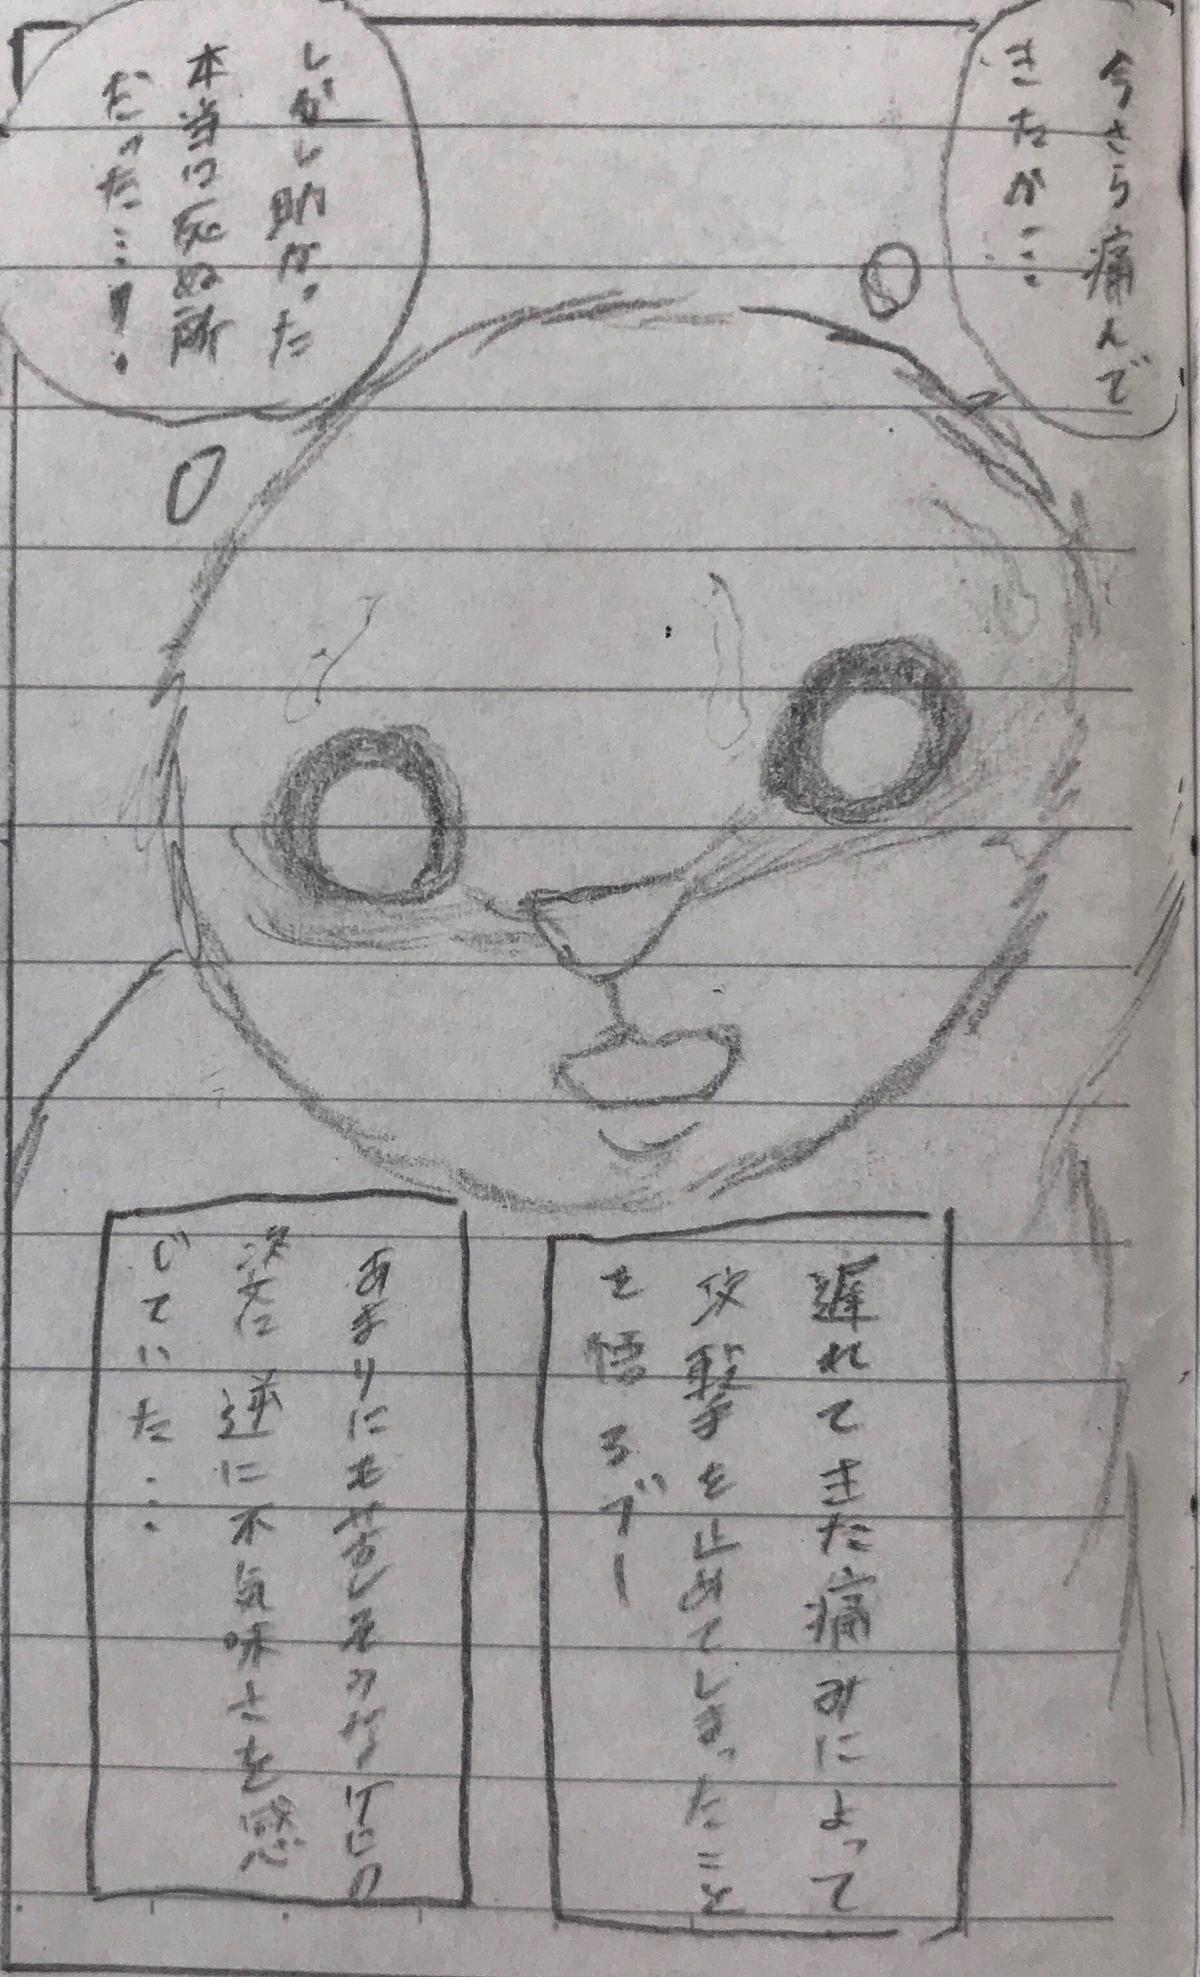 今さら痛んで
きたか…
しかし助かった
本当に死ぬ所
だった…!!
遅れてきた痛みによって
攻撃を止めてしまったこと
を悟るブー
あまりにも苦しそうな
逆に不気味さを感
じていた…